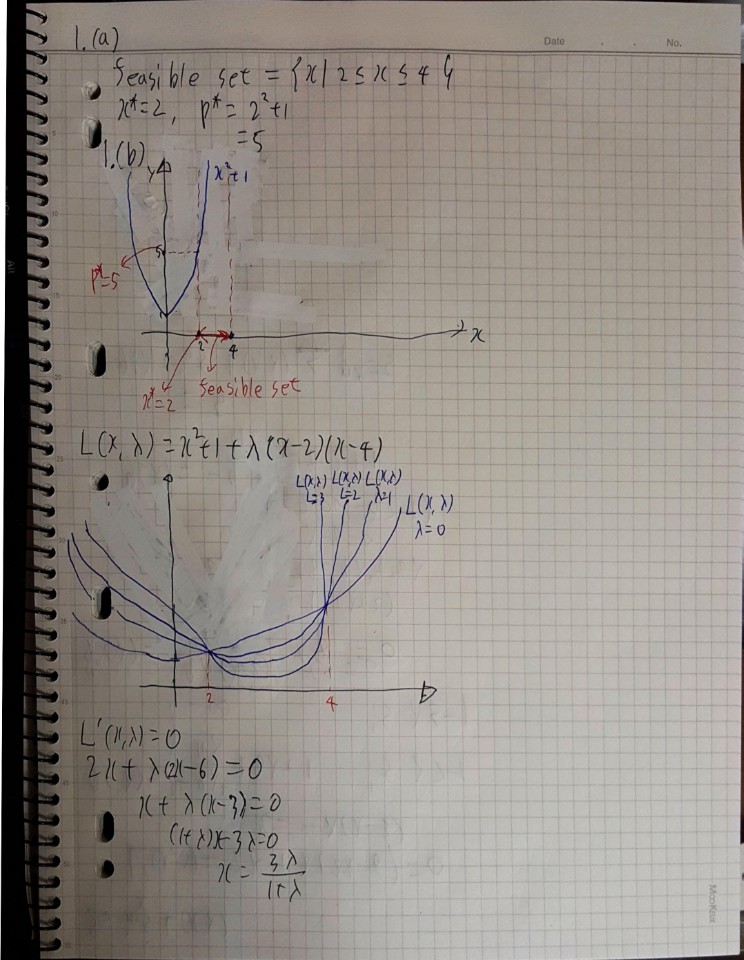 1.(a)
Date . . No.
feasible set = {x | 2 ≤ x ≤ 4}
x*=2, p* = 2²+1
=5
1.(b)
y
x²+1
5
p*=5
2 4
x
x*=2
feasible set
L(x, λ) = x²+1 + λ(x-2)(x-4)
L(x,λ) L(x,λ) L(x,λ)
L=3 L=2 λ=1
L(x,λ)
λ=0
2 4
L'(x,λ)=0
2x + λ(2x-6) = 0
x + λ(x-3)=0
(1+λ)x-3λ=0
x = 3λ/(1+λ)